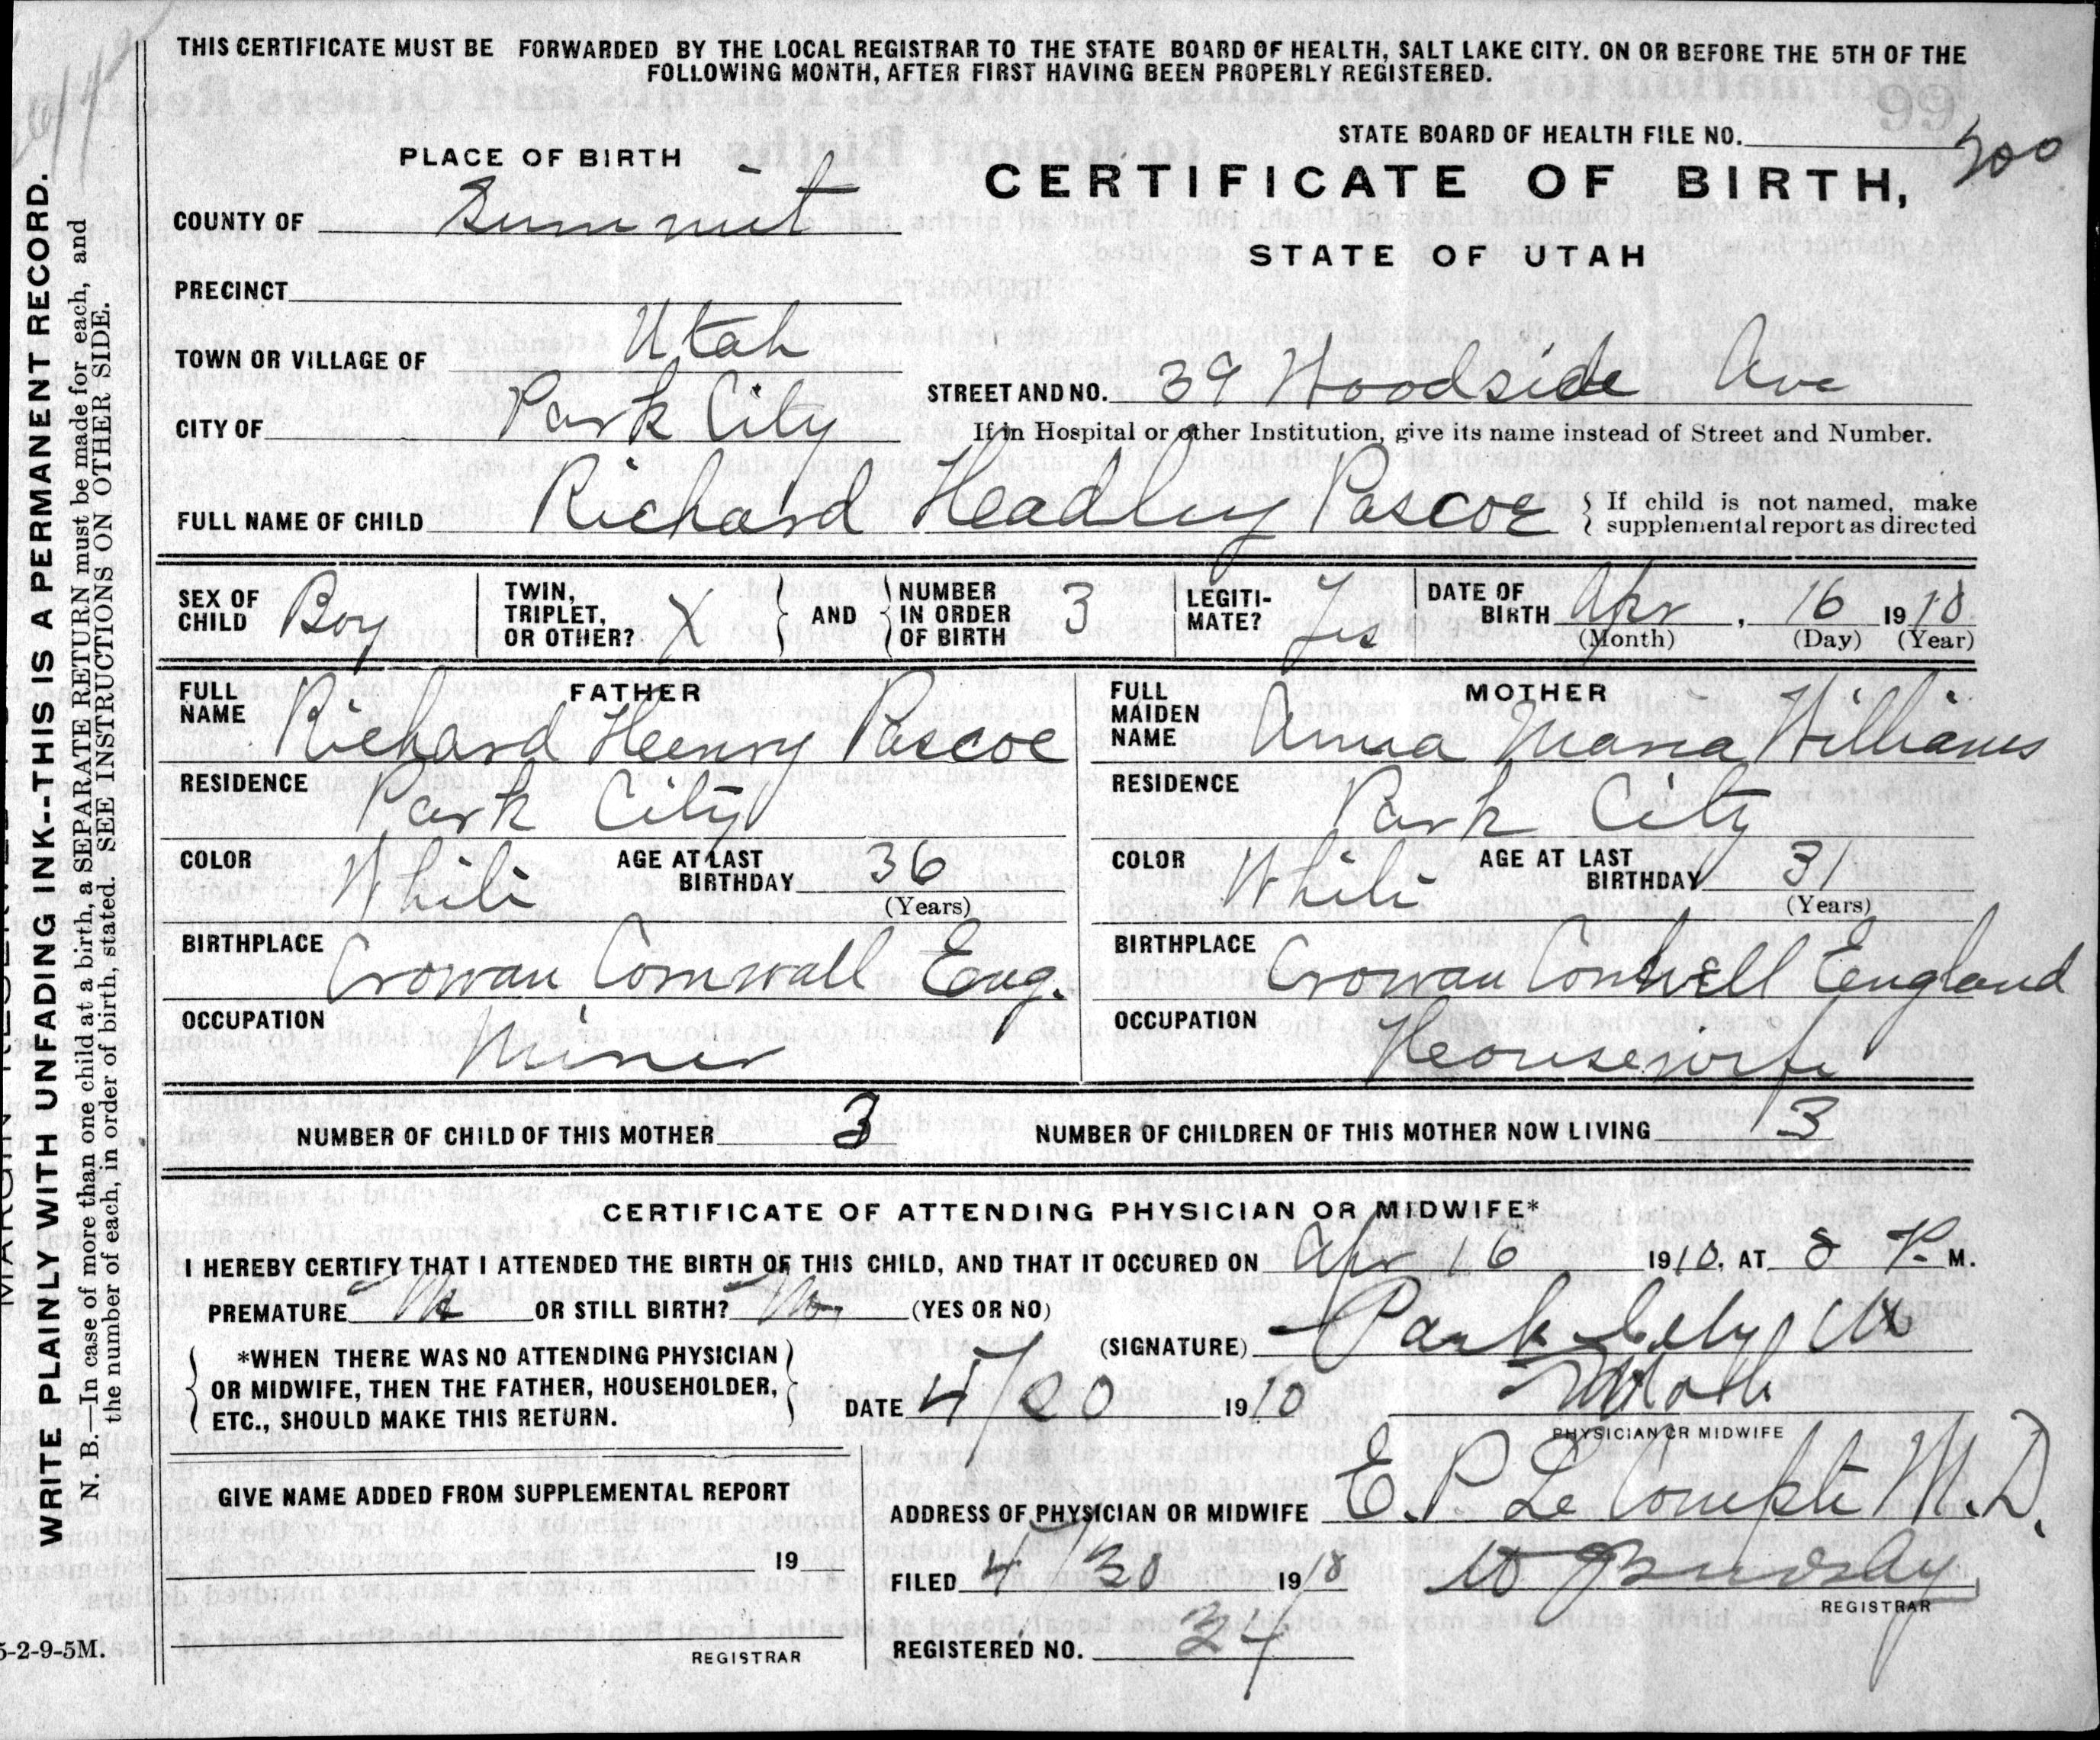 THIS CERTIFICATE MUST BE FORWARDED BY THE LOCAL REGISTRAR TO THE STATE BOARD OF HEALTH, SALT LAKE CITY. ON OR BEFORE THE 5TH OF THE
FOLLOWING MONTH, AFTER FIRST HAVING BEEN PROPERLY REGISTERED.
STATE BOARD OF HEALTH FILE NO. 200
PLACE OF BIRTH
CERTIFICATE OF BIRTH,
STATE OF UTAH
COUNTY OF Summit
PRECINCT
TOWN OR VILLAGE OF Utah
CITY OF Park City
STREET AND NO. 39 Woodside Ave
If in Hospital or other Institution, give its name instead of Street and Number.
FULL NAME OF CHILD Richard Headley Pascoe
{ If child is not named, make
supplemental report as directed
SEX OF CHILD Boy
TWIN, TRIPLET, OR OTHER? X
} AND {
NUMBER IN ORDER OF BIRTH 3
LEGITI-MATE? Yes
DATE OF BIRTH Apr 16, 1910
(Month) (Day) (Year)
FATHER
FULL NAME Richard Henry Pascoe
RESIDENCE Park City
COLOR White AGE AT LAST BIRTHDAY 36
(Years)
BIRTHPLACE Crowan Cornwall Eng.
OCCUPATION Miner
MOTHER
FULL MAIDEN NAME Anna Maria Williams
RESIDENCE Park City
COLOR White AGE AT LAST BIRTHDAY 31
(Years)
BIRTHPLACE Crowan Cornwell England
OCCUPATION Housewife
NUMBER OF CHILD OF THIS MOTHER 3
NUMBER OF CHILDREN OF THIS MOTHER NOW LIVING 3
CERTIFICATE OF ATTENDING PHYSICIAN OR MIDWIFE*
I HEREBY CERTIFY THAT I ATTENDED THE BIRTH OF THIS CHILD, AND THAT IT OCCURED ON Apr 16 1910, AT 8 P. M.
PREMATURE No OR STILL BIRTH? No (YES OR NO)
(SIGNATURE) Park City Ut
*WHEN THERE WAS NO ATTENDING PHYSICIAN
OR MIDWIFE, THEN THE FATHER, HOUSEHOLDER,
ETC., SHOULD MAKE THIS RETURN.
DATE 4/20 1910
PHYSICIAN OR MIDWIFE
GIVE NAME ADDED FROM SUPPLEMENTAL REPORT
19
REGISTRAR
ADDRESS OF PHYSICIAN OR MIDWIFE E. P. Le Compte M.D.
FILED 4/30 1910
REGISTRAR
REGISTERED NO. 34
WRITE PLAINLY WITH UNFADING INK--THIS IS A PERMANENT RECORD.
N. B.—In case of more than one child at a birth, a SEPARATE RETURN must be made for each, and
the number of each, in order of birth, stated. SEE INSTRUCTIONS ON OTHER SIDE.
5-2-9-5M.